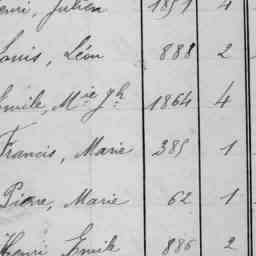 Henri, Julien 1851 4
Louis, Léon 888 2
Emile, Mie Jh 1864 4
Francis, Marie 385 1
Pierre, Marie 62 1
Henri Emile 886 2